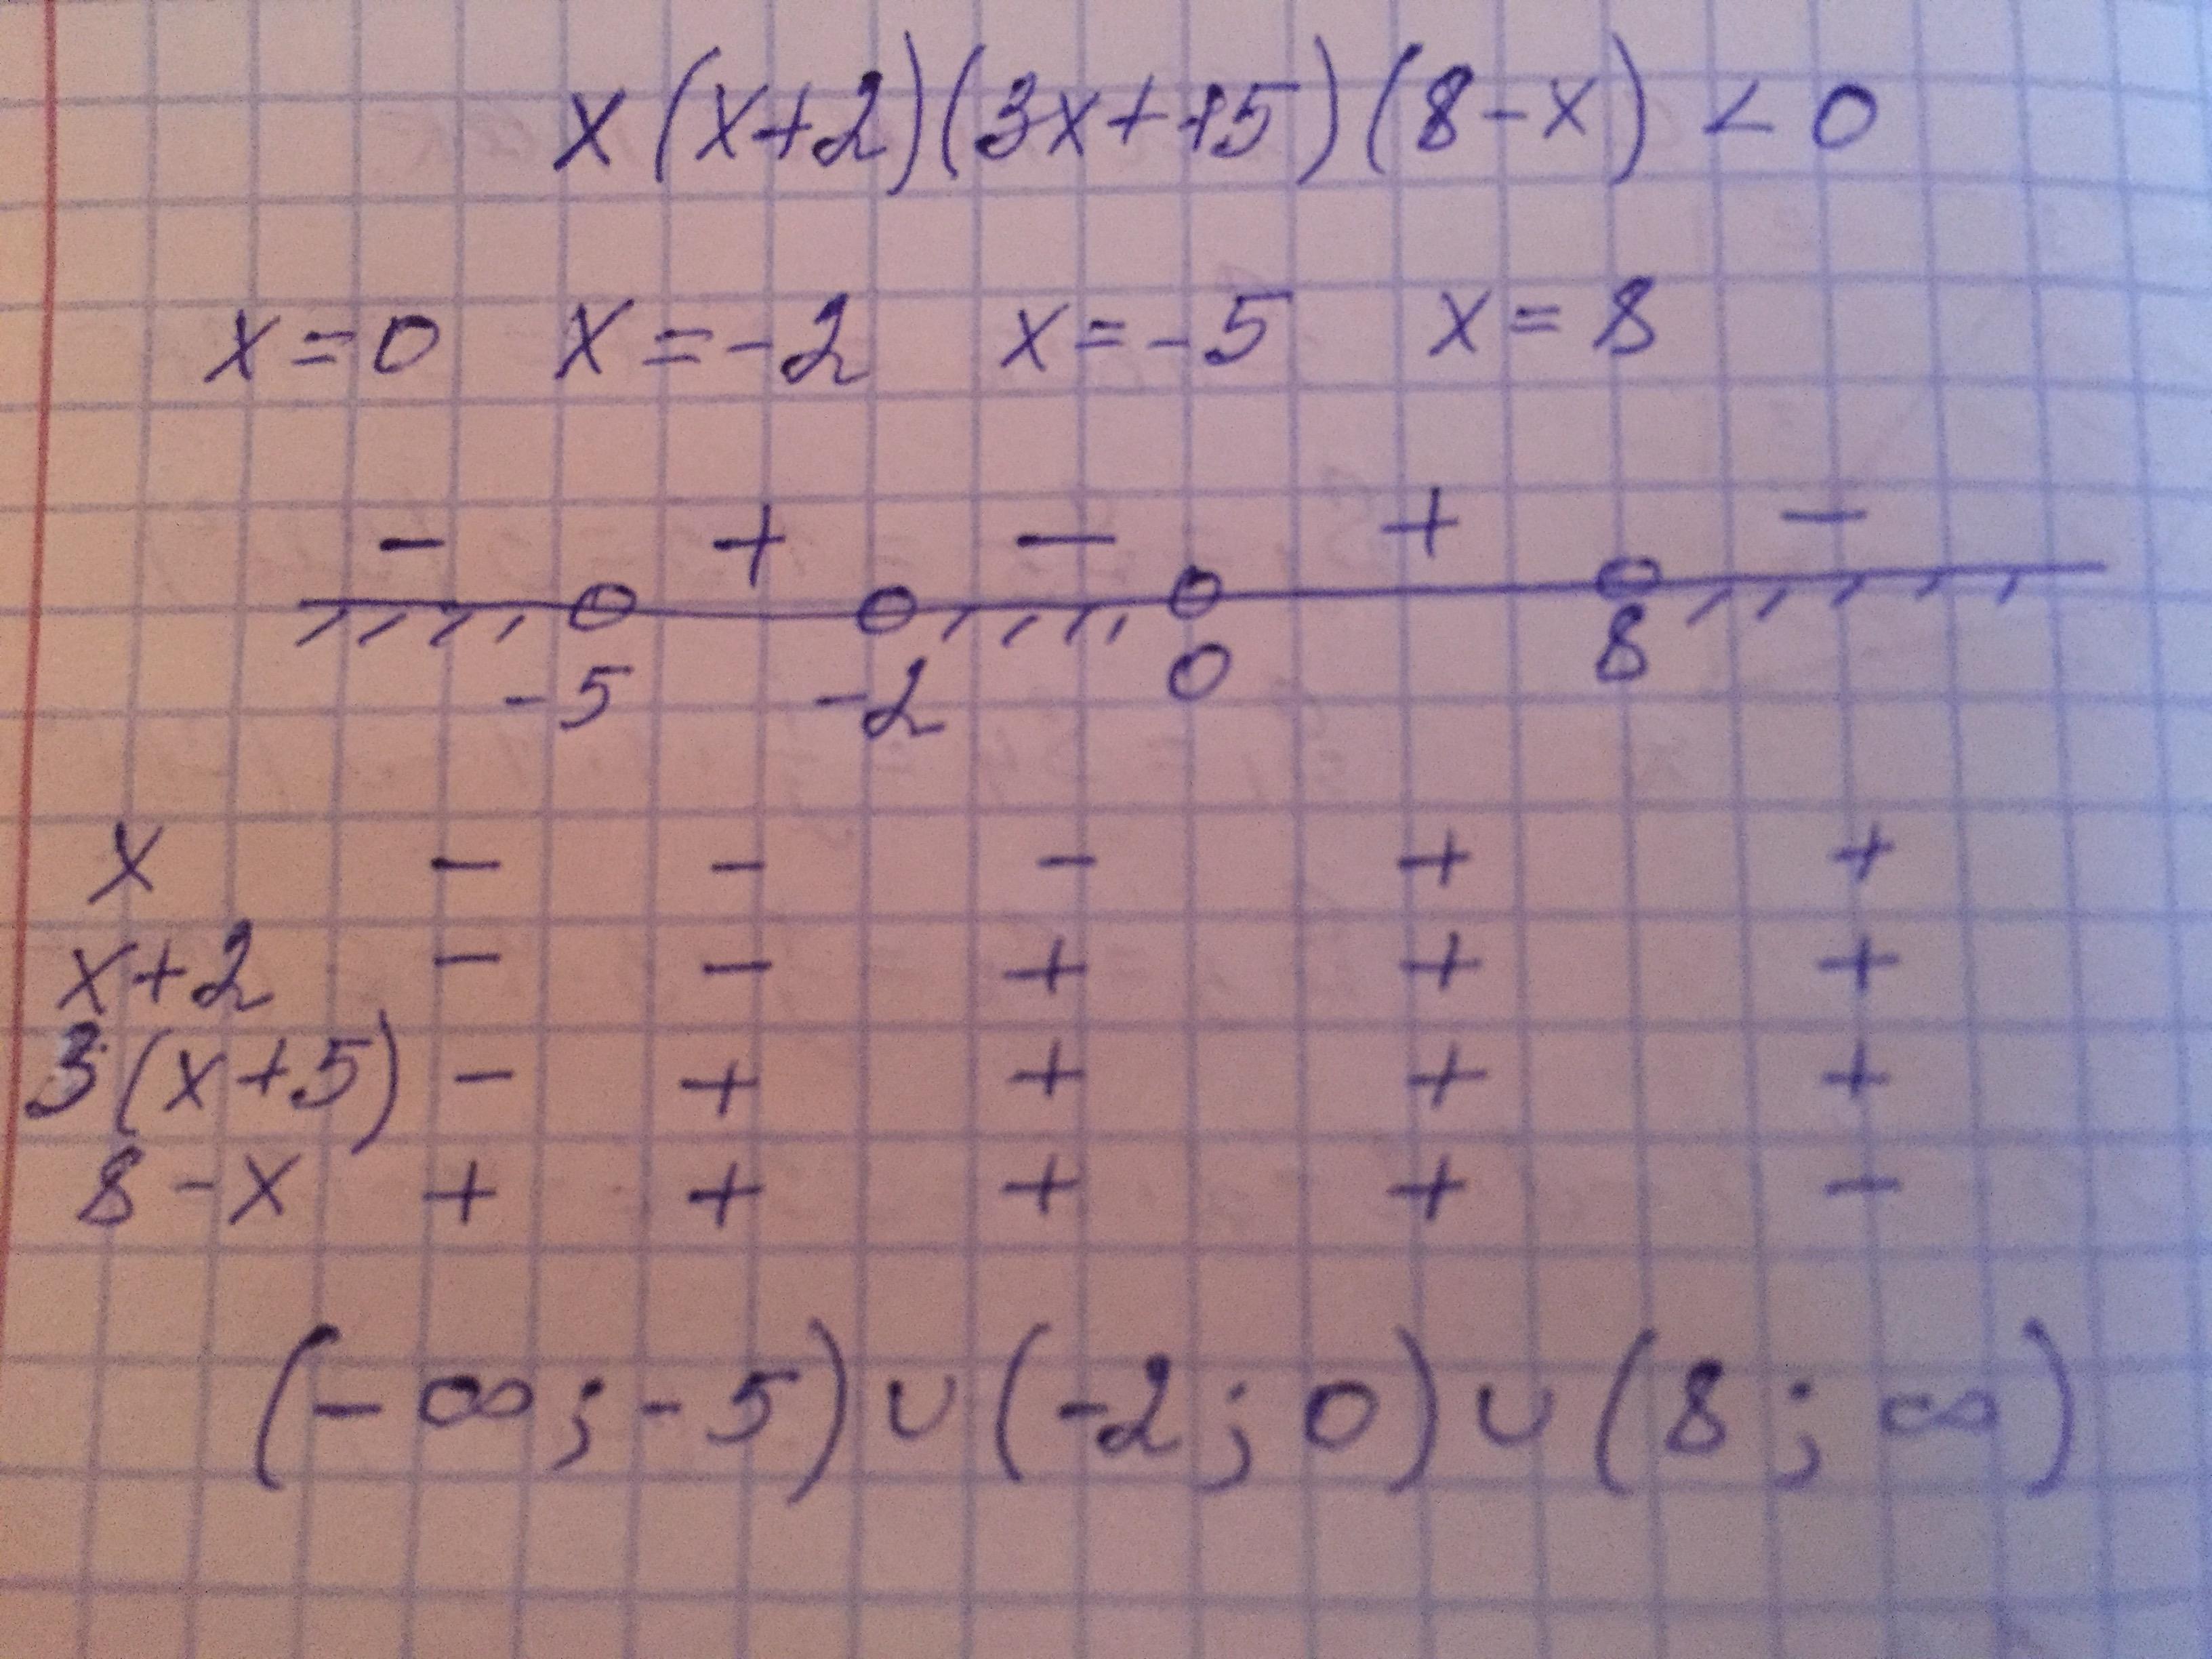 x(x+2)(3x+15)(8-x) < 0
x=0 x=-2 x=-5 x=8
- + - + -
-5 -2 0 8
x - - - + +
x+2 - - + + +
3(x+5) - + + + +
8-x + + + + -
(-∞;-5)∪(-2;0)∪(8;∞)